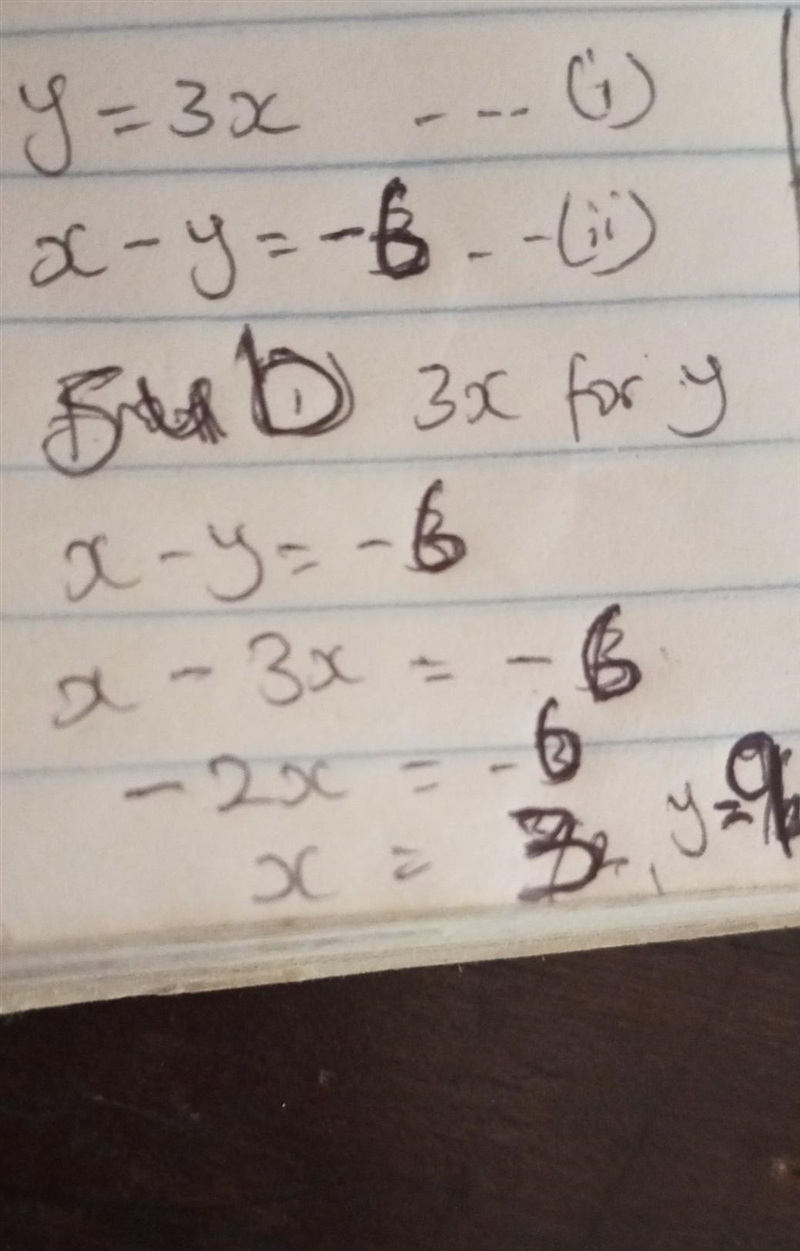 y = 3x - - - (i)
x - y = -6 - - (ii)
3x for y
x - y = -6
x - 3x = -6
-2x = -6
x = 3, y = 9